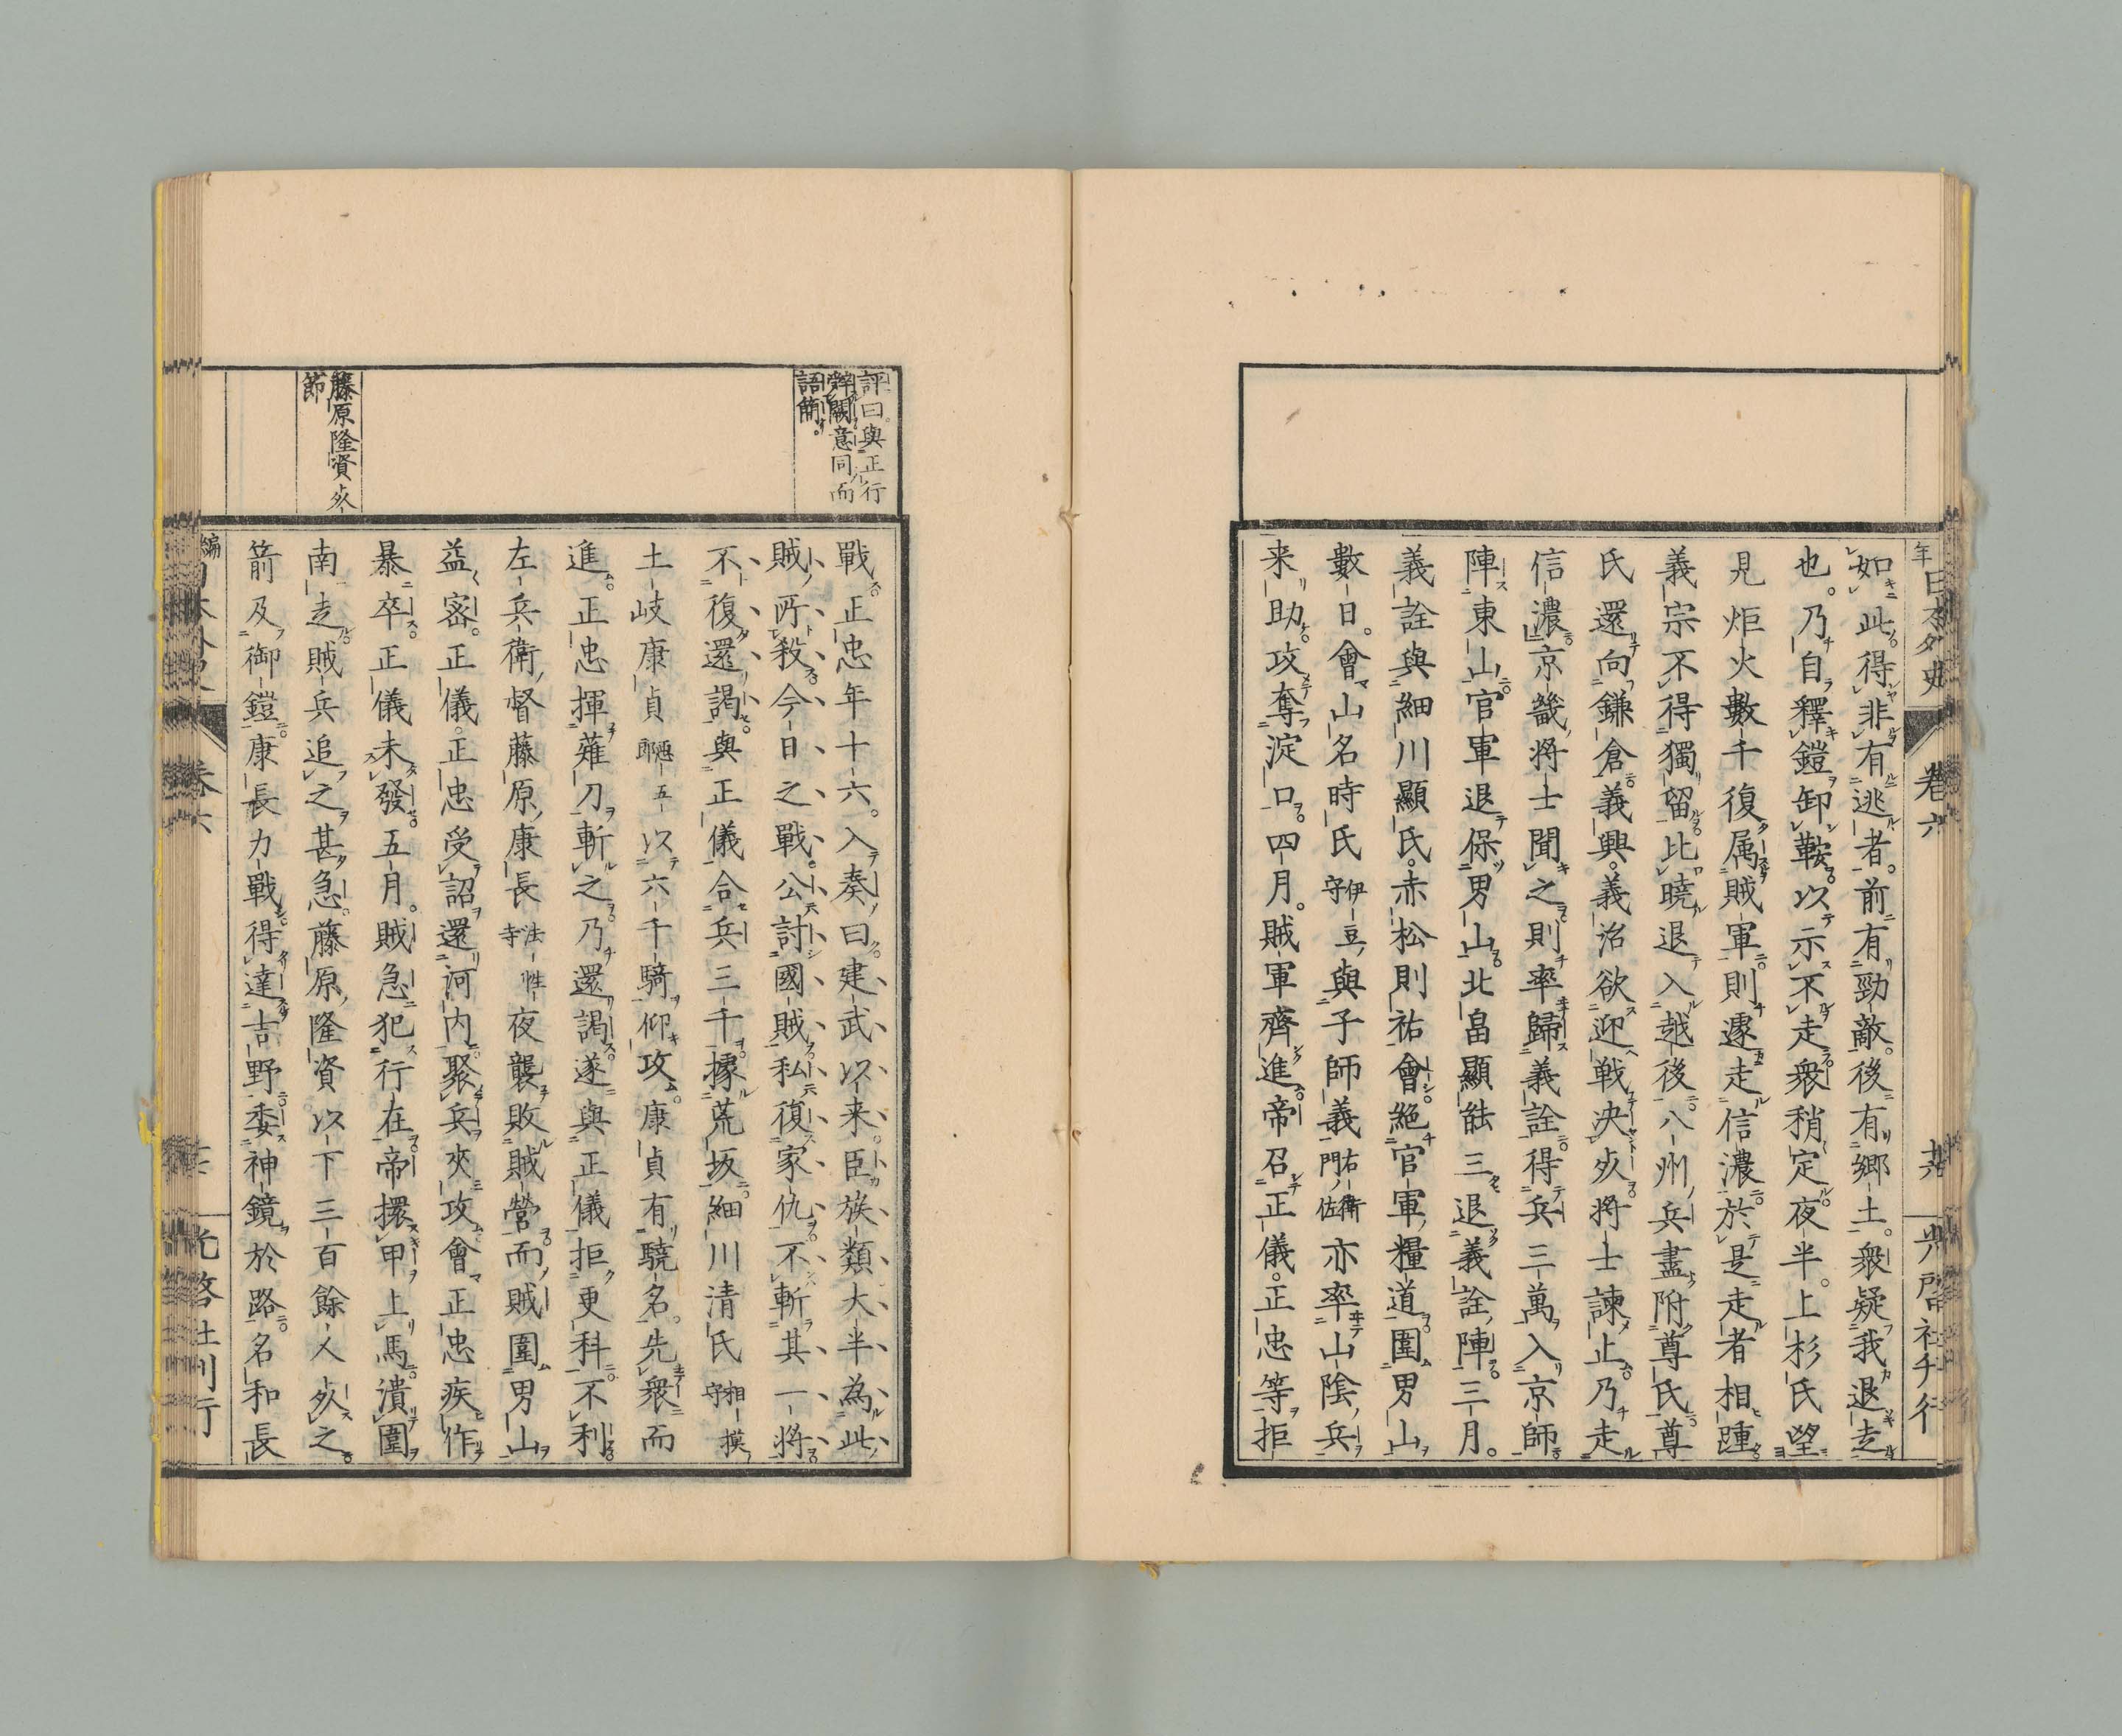 如此。得非有逃者。前有勁敵。後有郷土。衆疑我退走
也。乃自釋鎧卸鞍。以示不走。衆稍定。夜半。上杉氏望
見炬火數千復属賊軍。則遽走信濃。於是走者相踵。
義宗不得獨留。比曉退入越後。八州兵盡附尊氏。尊
氏還向鎌倉。義興。義治欲迎戰決死。將士諫止。乃走
信濃。京畿將士聞之。則率歸義詮。得兵三萬。入京師。
陣東山。官軍退保男山。北畠顯能三退義詮陣。三月。
義詮與細川顯氏。赤松則祐會絶官軍糧道。圍男山
數日。會山名時氏伊豆守與子師義右衛門佐亦率山陰兵
来助。攻奪淀口。四月。賊軍齊進。帝召正儀。正忠等拒
年日本外史 巻六 光啓社刊行
評曰。與正行
辭闕意同而
語簡。
戰。正忠年十六。入奏曰。建武以来。臣族類大半為此
賊所殺。今日之戰。公討國賊。私復家仇。不斬其一將。
不復還謁。與正儀合兵三千。據荒坂。細川清氏相摸守
土岐康貞惡五郎以六千騎仰攻。康貞有驍名。先衆而
進。正忠揮薙刀斬之。乃還謁。遂與正儀拒更科。不利。
左兵衛督藤原康長法性寺夜襲敗賊營。而賊圍男山
益密。正儀。正忠受詔還河内。聚兵夾攻。會正忠疾作
暴卒。正儀未發。五月。賊急犯行在。帝擐甲上馬。潰圍
藤原隆資死
節
南走。賊兵追之甚急。藤原隆資以下三百餘人死之。
箭及御鎧。康長力戰得達吉野。委神鏡於路。名和長
編 巻六 光啓社刊行